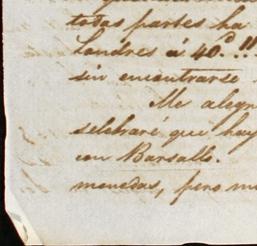 todas partes ha
Londres á 40.d..!!
sin encontrarse
Me alegr
celebraré que hay
con Barsallo.
monedas, pero m